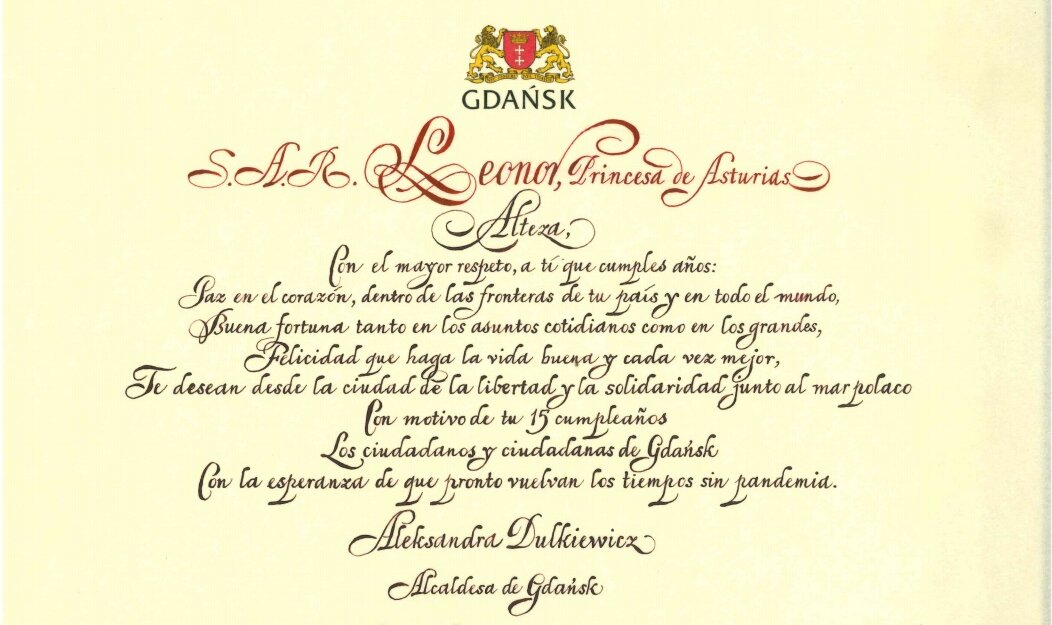 GDAŃSK
S.A.R. Leonor, Princesa de Asturias
Alteza,
Con el mayor respeto, a tí que cumples años:
Paz en el corazón, dentro de las fronteras de tu país y en todo el mundo,
Buena fortuna tanto en los asuntos cotidianos como en los grandes,
Felicidad que haga la vida buena y cada vez mejor,
Te desean desde la ciudad de la libertad y la solidaridad junto al mar polaco
Con motivo de tu 15 cumpleaños
Los ciudadanos y ciudadanas de Gdańsk
Con la esperanza de que pronto vuelvan los tiempos sin pandemia.
Aleksandra Dulkiewicz
Alcaldesa de Gdańsk